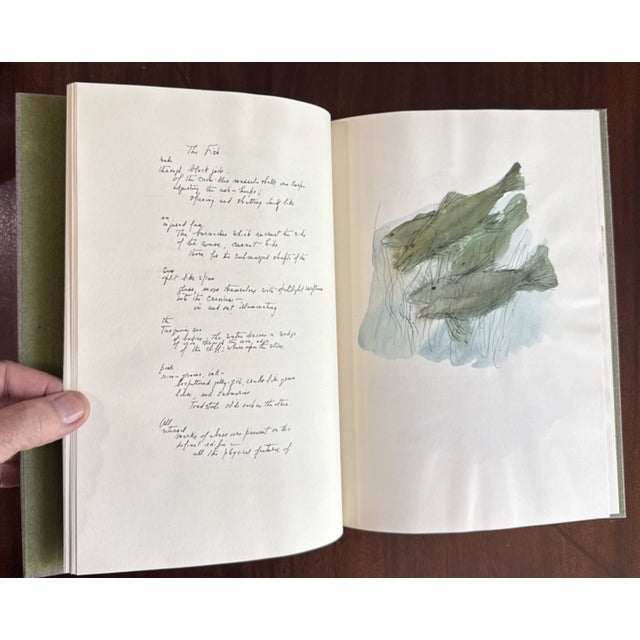 The Fish
wade
through black jade.
Of the crow-blue mussel-shells, one keeps
adjusting the ash-heaps;
opening and shutting itself like
an
injured fan.
The barnacles which encrust the side
of the wave, cannot hide
there for the submerged shafts of the
sun
split like spun
glass, move themselves with spotlight swiftness
into the crevices—
in and out, illuminating
the
turquoise sea
of bodies. The water drives a wedge
of iron through the iron edge
of the cliff; whereupon the stars,
pink
rice-grains, ink-
bespattered jelly-fish, crabs like green
lilies, and submarine
toadstools, slide each on the other.
All
external
marks of abuse are present on this
defiant edifice—
all the physical features of